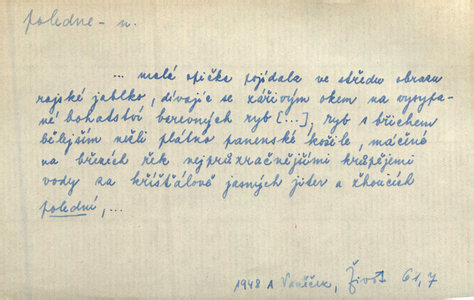 poledne - n.
... malé opička pojídala ve středu obrazu
rajské jablko, dívajíc se zářivým okem na vysypa-
né bohatství barevných ryb [...], ryb s břichem
bělejším nežli plátno panenské košile, máčené
na březích řek nejprůzračnějšími krůpějemi
vody za křišťálově jasných jiter a žhoucích
poledni, ...
1948 A Vaněček, Život 61,7